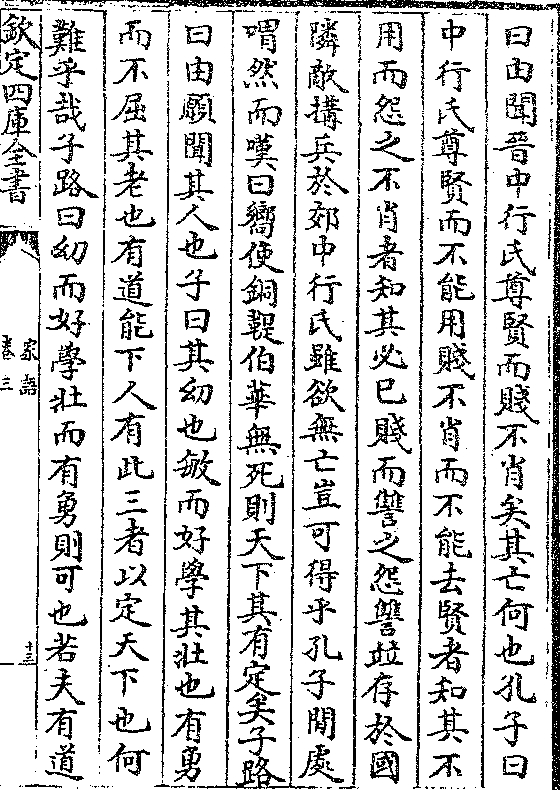 曰由聞晉中行氏尊賢而賤不肖矣其亡何也孔子曰
中行氏尊賢而不能用賤不肖而不能去賢者知其不
用而怨之不肖者知其必已賤而讐之怨讐並存於國
隣敵搆兵於郊中行氏雖欲無亡豈可得乎孔子閒處
喟然而嘆曰嚮使銅鞮伯華無死則天下其有定矣子路
曰由願聞其人也子曰其幼也敏而好學其壯也有勇
而不屈其老也有道能下人有此三者以定天下也何
難乎哉子路曰幼而好學壯而有勇則可也若夫有道
欽定四庫全書
家語
卷三
十三